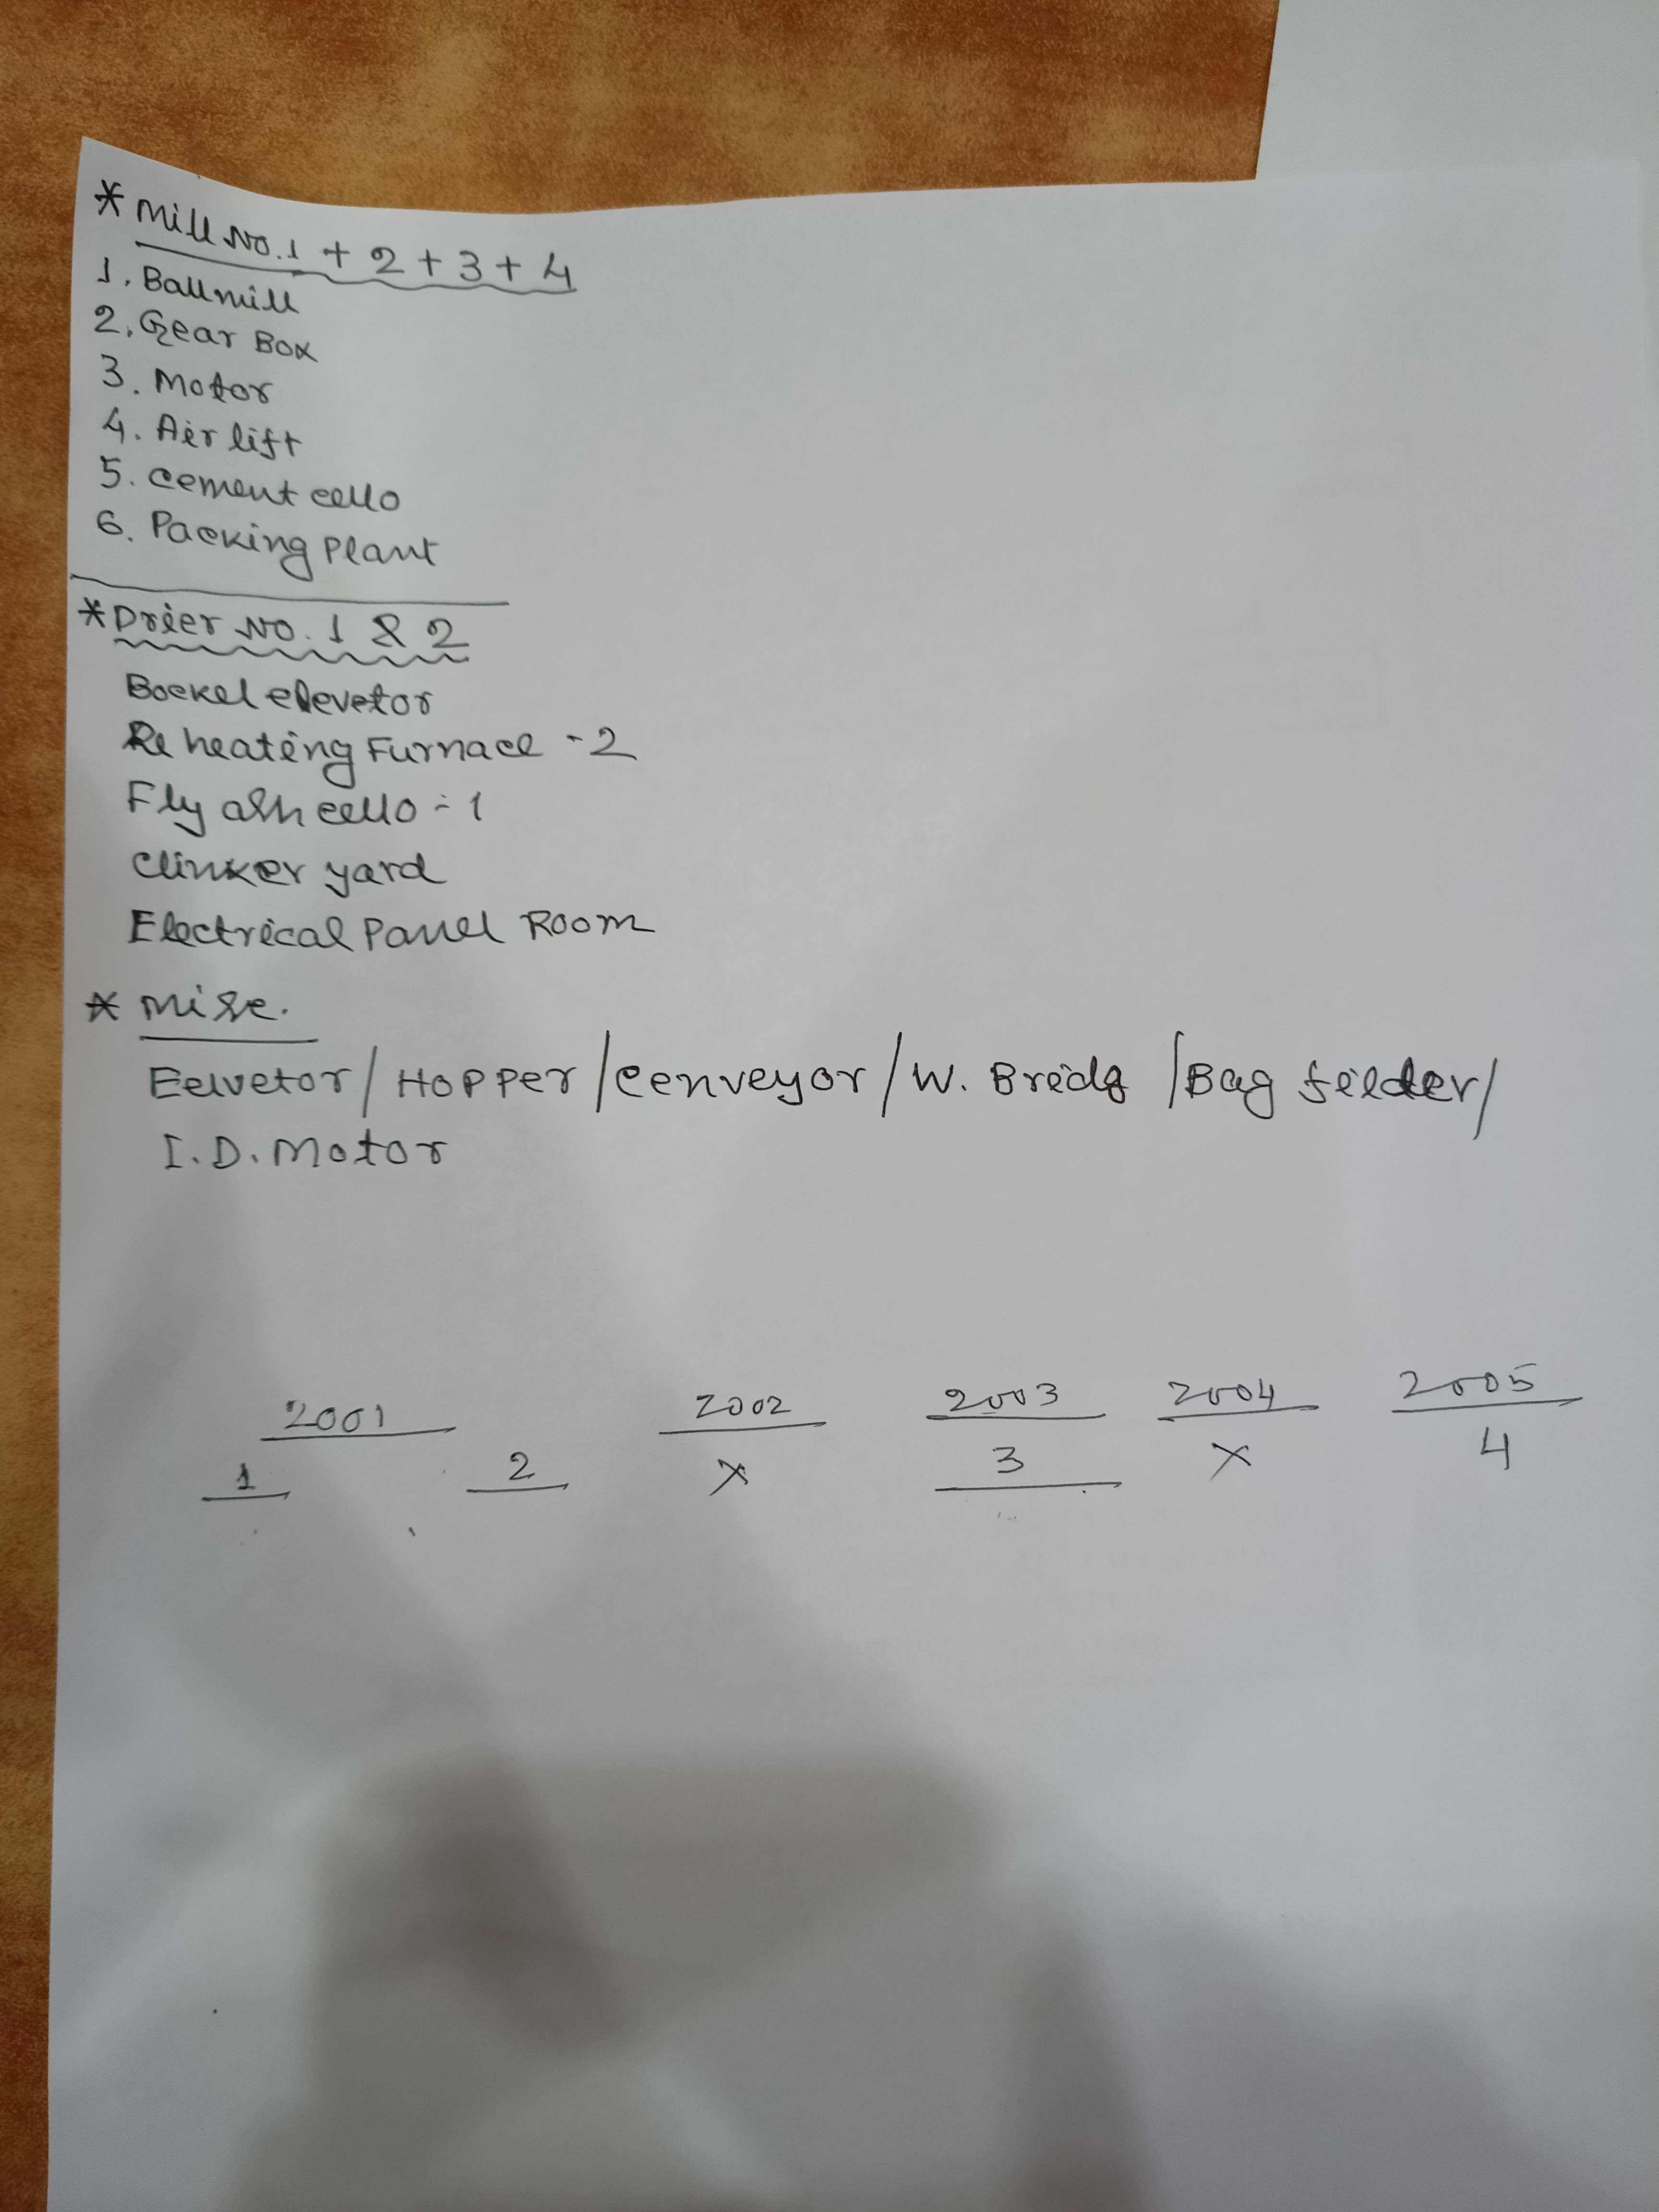 * Mill No. 1 + 2 + 3 + 4
1. Ballmill
2. Gear Box
3. Motor
4. Air lift
5. Cement cello
6. Packing Plant
* Drier No. 1 & 2
Bockel elevetor
Re heating Furnace - 2
Fly ash cello - 1
Clinker yard
Electrical Panel Room
* Misc.
Eelvetor / Hopper / Cenveyor / W. Bredg / Bag feilder /
I. D. Motor
2001 2002 2003 2004 2005
1 2 X 3 X 4